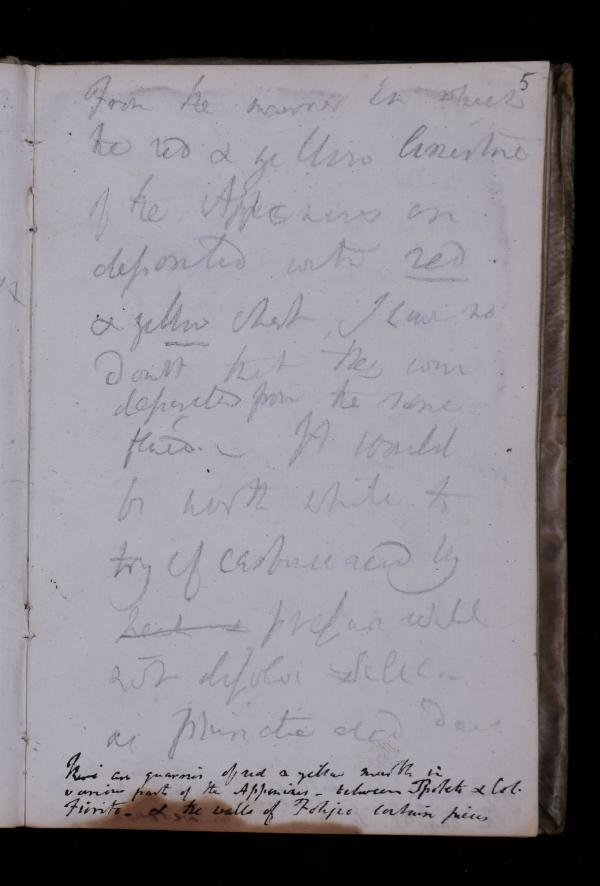 5
From the manner in which
the red & yellow limestone
of the Appenines are
deposited with red
& yellow chert, I have no
doubt that they were
deposited from the same
fluid. – It would
be worth while to
try if carbonic acid by
heat pressure will
not dissolve silica
as
There are quarries of red & yellow marble in
various parts of the Appenines – between Spoleto & Col-
Fiorito – & the walls of Foligno contain pieces